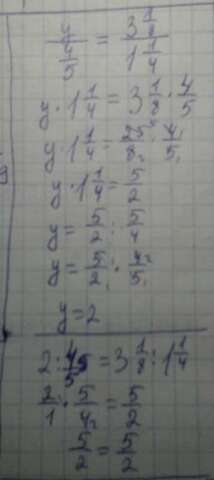 y/(4/5) = 3 1/8 / 1 1/4
y · 1 1/4 = 3 1/8 · 4/5
y · 1 1/4 = 25/8 · 4/5
y · 1 1/4 = 5/2
y = 5/2 : 5/4
y = 5/2 · 4/5
y = 2
2 : 4/5 = 3 1/8 : 1 1/4
2/1 · 5/4 = 5/2
5/2 = 5/2